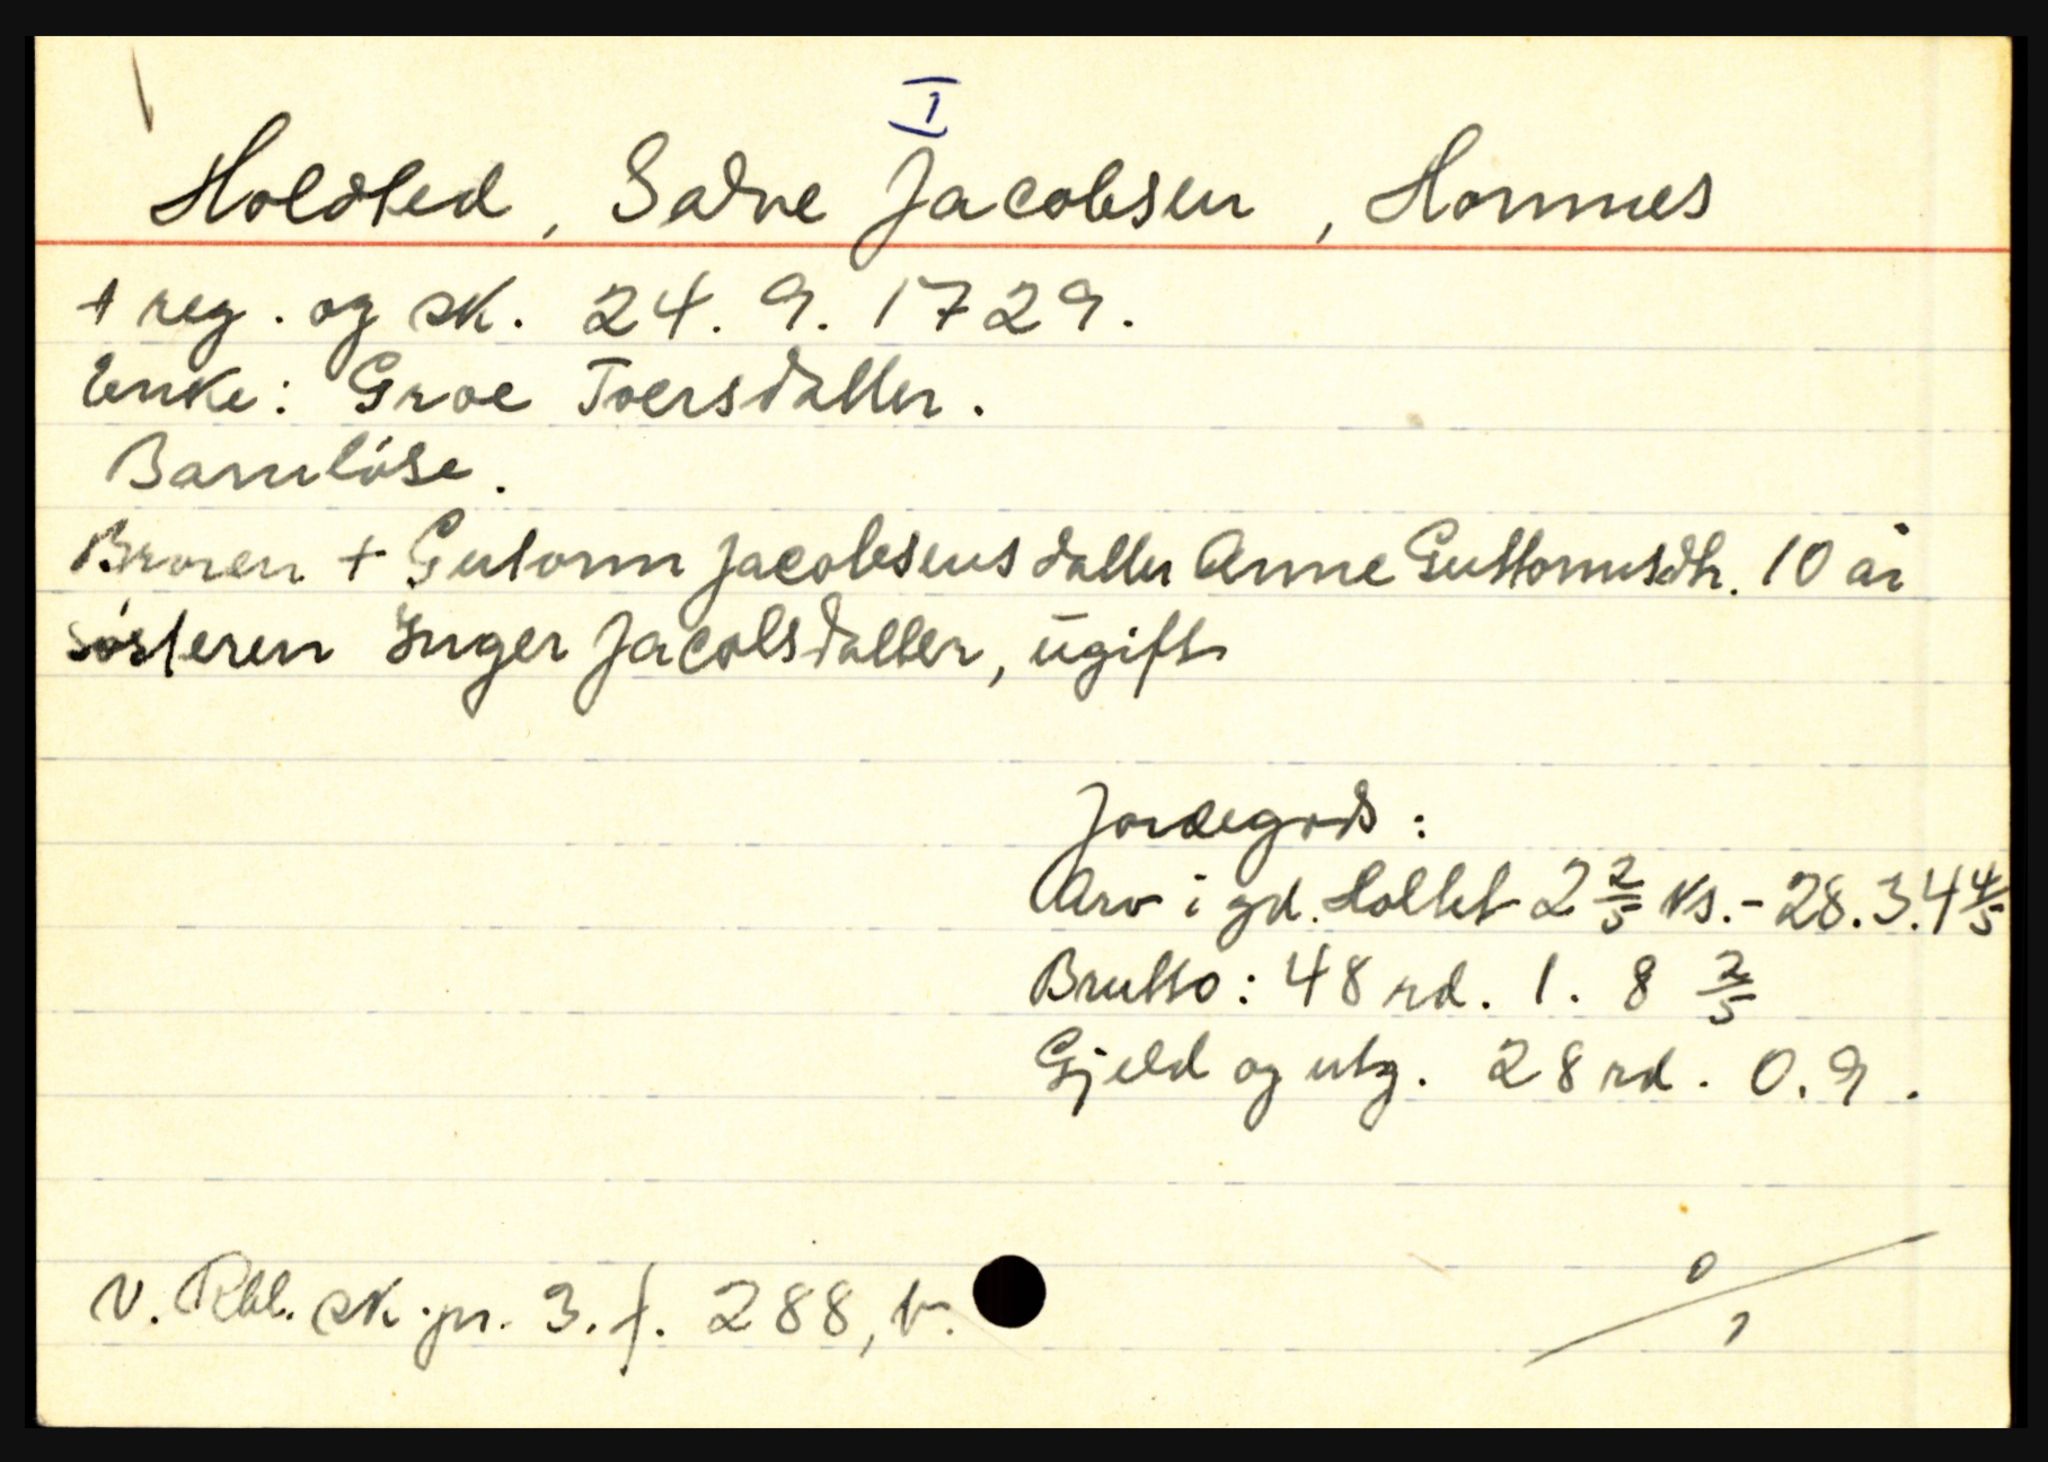 I
Holdted, Salve Jacobsen, Homnes
+ reg. og sk. 24. 9. 1729.
Enke: Groe Toersdatter.
Barnløse.
Broren + Gutorm Jacobsens datter Anne Guttormsdtr. 10 år
søsteren Inger Jacobsdatter, ugift
Jordegods:
Arv i gd. Holtet 2 2/5 ks. - 28.3.4 4/5
Brutto: 48 rd. 1. 8 2/5
Gjeld og utg. 28 rd. 0.9.
V. Rbl. sk.pr. 3. f. 288, b.
0/1